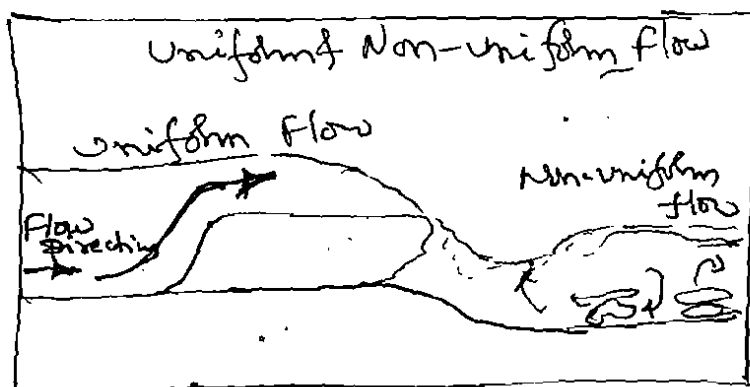 Uniform & Non-uniform Flow
Uniform Flow
Non-uniform
flow
Flow
Direction